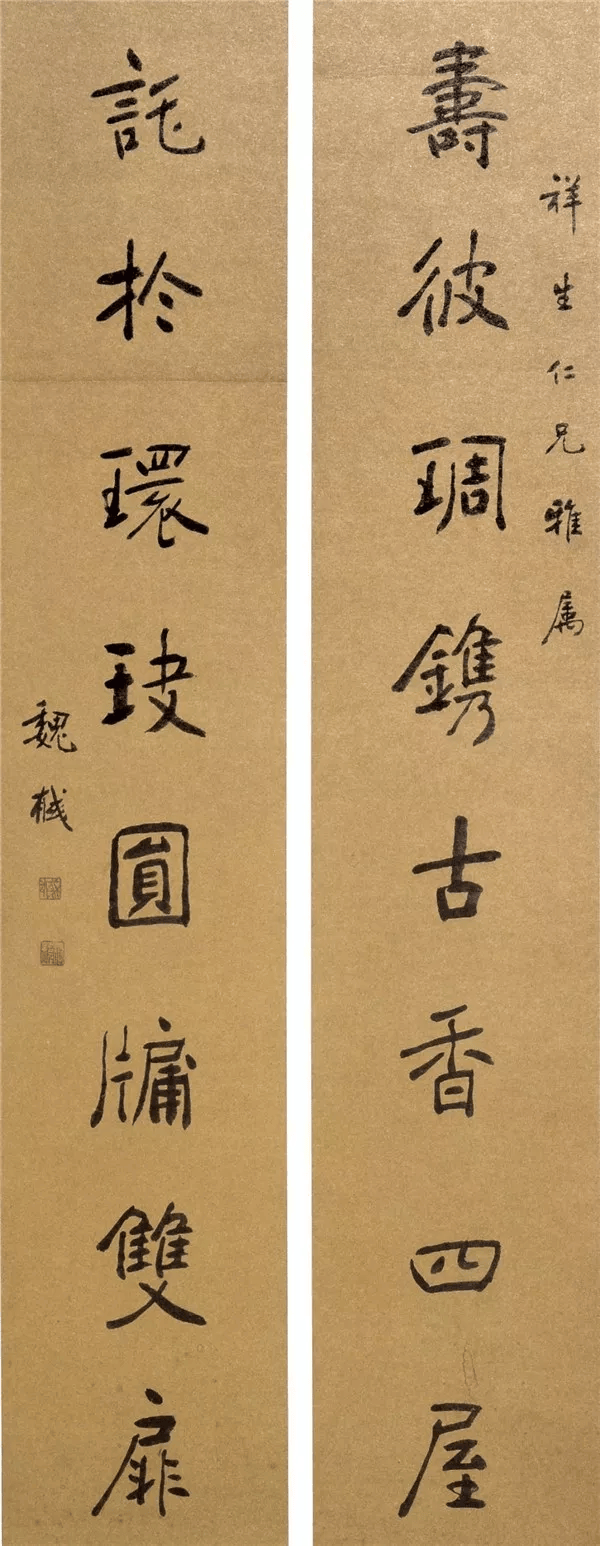 祥生仁兄雅属
壽彼琱鐫古香四屋
託於環玦圓牖雙扉
魏